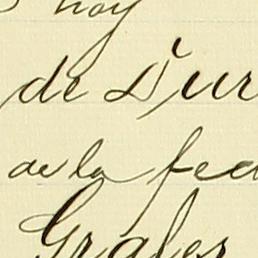 hoy
de Dur
de la fec
Grales